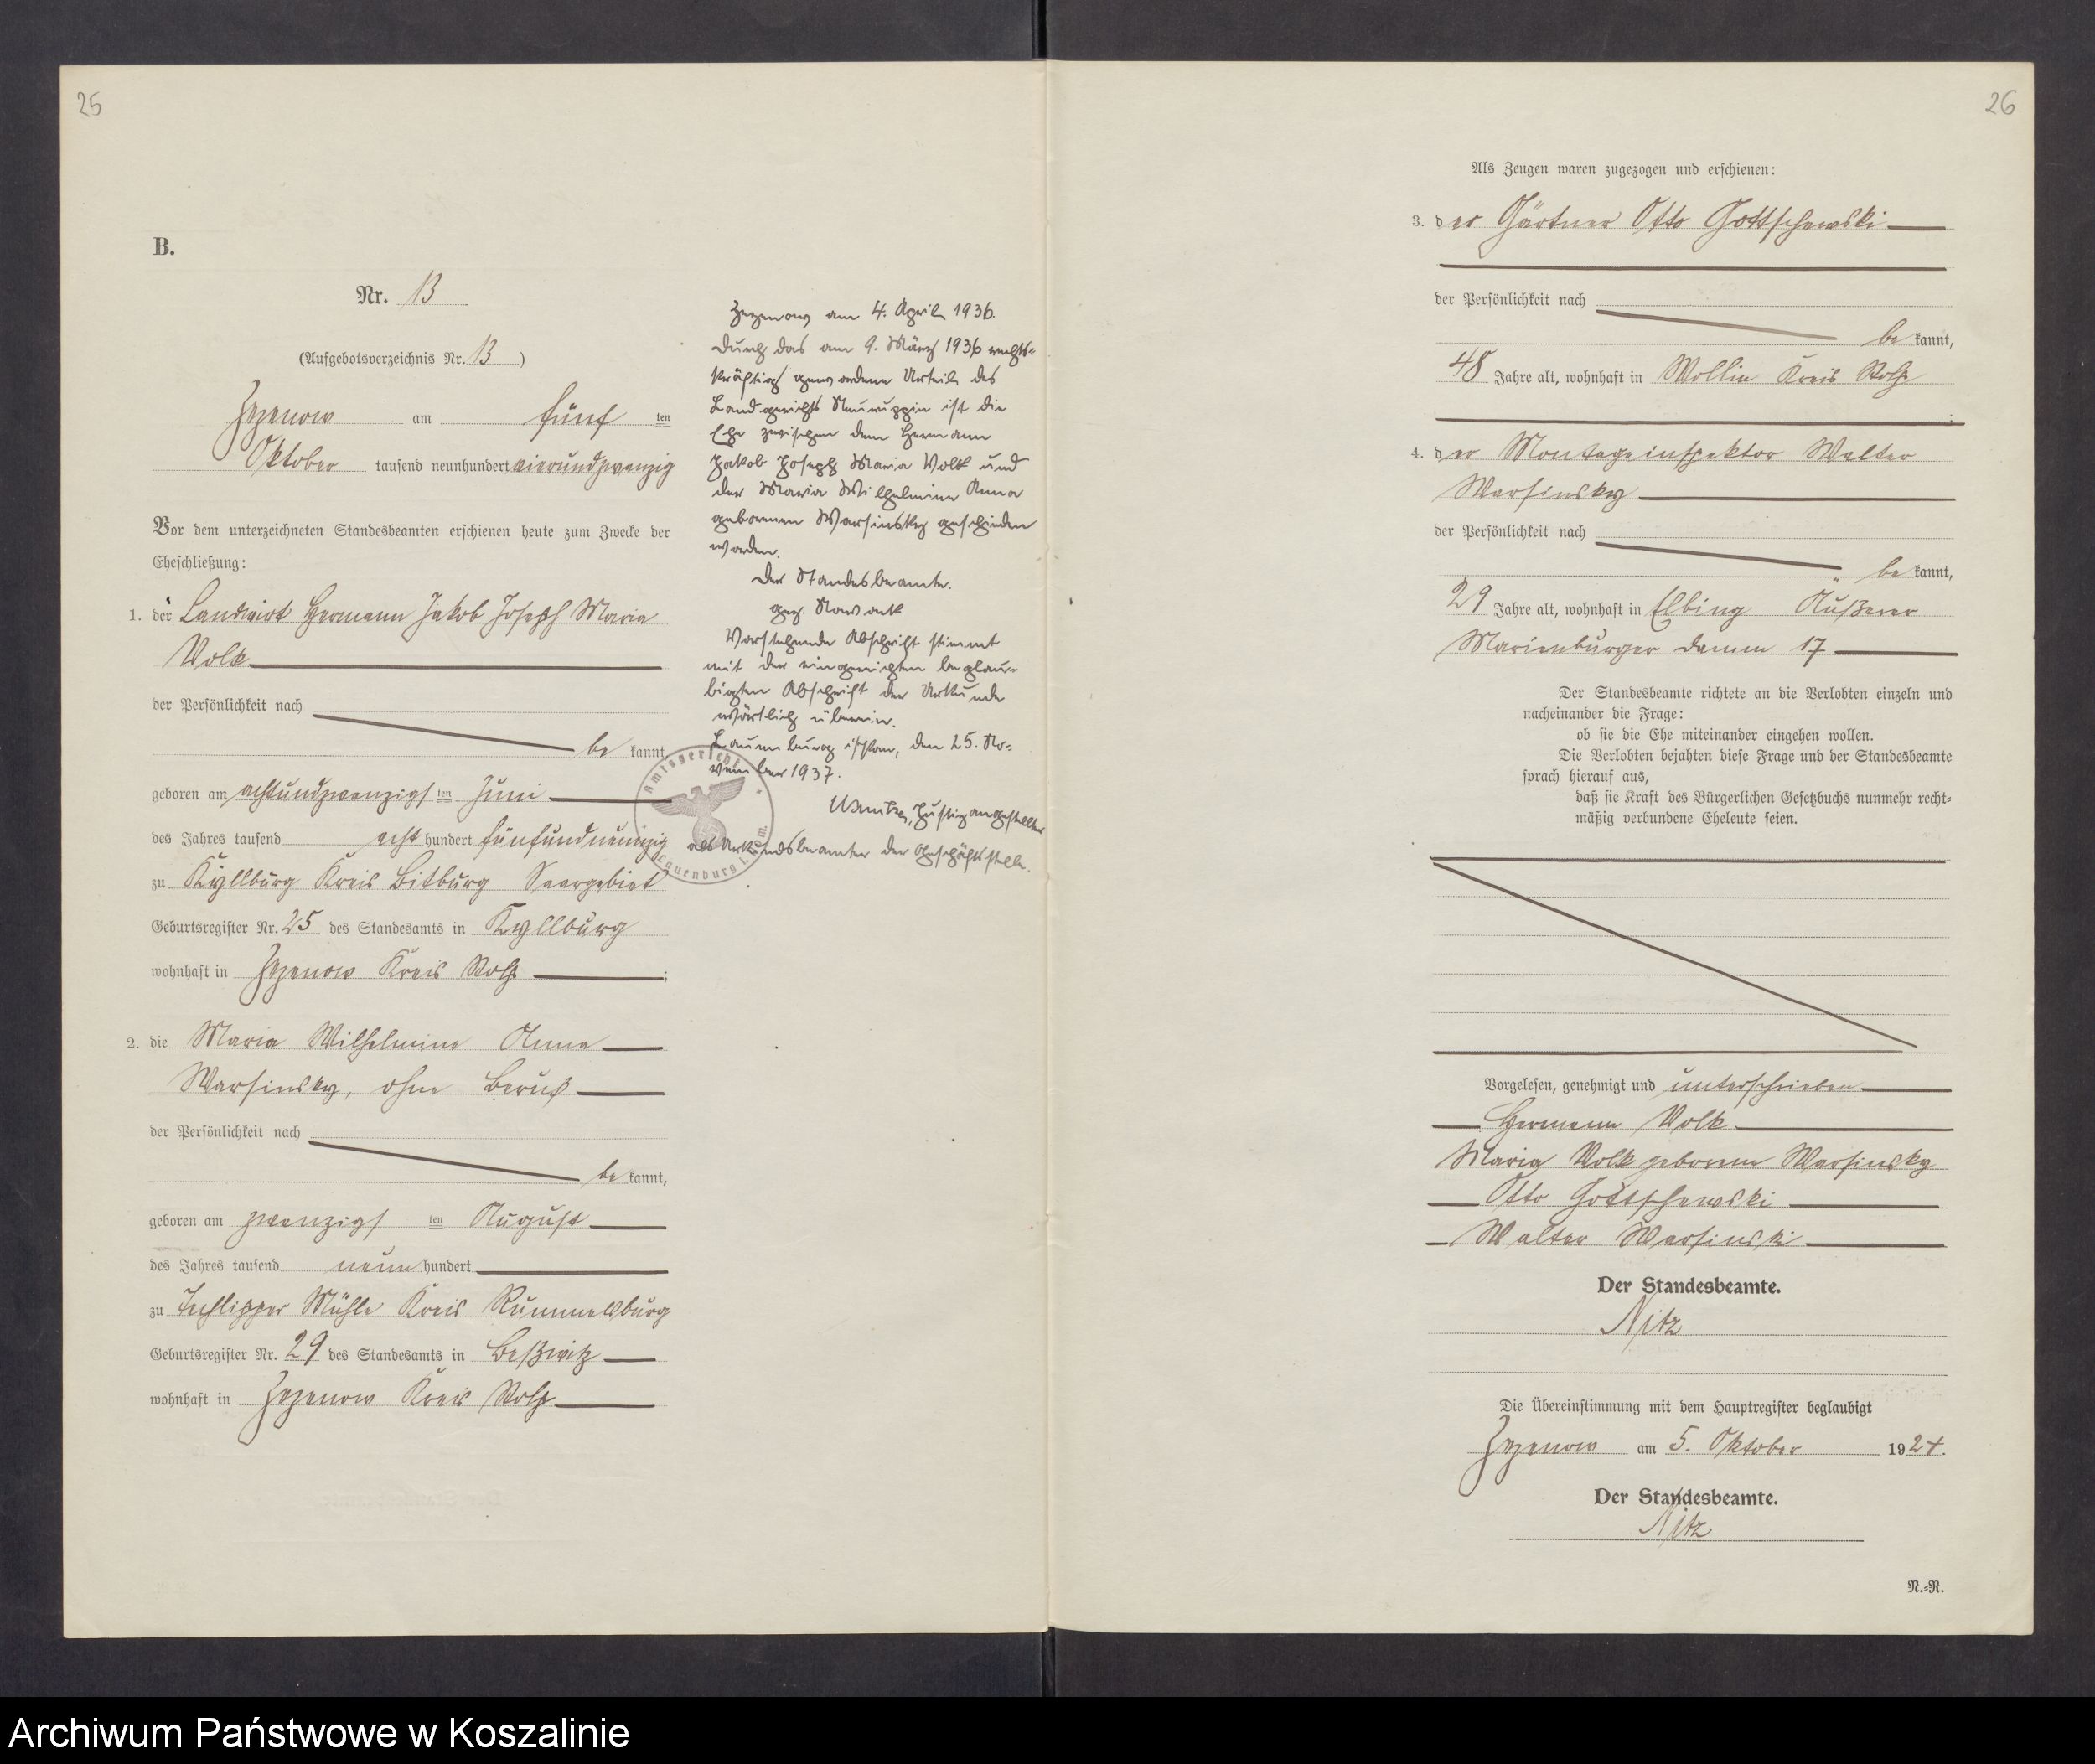 25
B.
Nr. 13
(Aufgebotsverzeichnis Nr. 13)
Zezenow am fünf ten
Oktober tausend neunhundert vierundzwanzig
Vor dem unterzeichneten Standesbeamten erschienen heute zum Zwecke der
Eheschließung:
1. der Landwirt Hermann Jakob Joseph Maria
Volk
der Persönlichkeit nach
be kannt,
geboren am achtundzwanzigs ten Juni
des Jahres tausend acht hundert fünfundneunzig
zu Kyllburg Kreis Bitburg Saargebiet
Geburtsregister Nr. 25 des Standesamts in Kyllburg
wohnhaft in Zezenow Kreis Stolp ;
2. die Maria Wilhelmine Anna
Warsinsky, ohne Beruf
der Persönlichkeit nach
be kannt,
geboren am zwanzigs ten August
des Jahres tausend neun hundert
zu Techlipper Mühle Kreis Rummelsburg
Geburtsregister Nr. 29 des Standesamts in Beßwitz
wohnhaft in Zezenow Kreis Stolp
Zezenow am 4. April 1936.
Durch das am 9. März 1936 rechts-
kräftig gewordene Urteil des
Landgerichts Neuruppin ist die
Ehe zwischen dem Hermann
Jakob Joseph Maria Volk und
der Maria Wilhelmine Anna
geborenen Warsinsky geschieden
worden.
Der Standesbeamte.
gez. Nowack
Vorstehende Abschrift stimmt
mit der eingereichten beglau-
bigten Abschrift der Urkunde
wörtlich überein.
Lauenburg i/Pom, den 25. No-
vember 1937.
Justizangestellter
als Urkundsbeamter der Geschäftsstelle.
Amtsgericht
Lauenburg i. Pom.
26
Als Zeugen waren zugezogen und erschienen:
3. der Gärtner Otto Gottschewski
der Persönlichkeit nach
be kannt,
48 Jahre alt, wohnhaft in Wollin Kreis Stolp
;
4. der Montageinspektor Walter
Warsinsky
der Persönlichkeit nach
be kannt,
29 Jahre alt, wohnhaft in Elbing Äußerer
Marienburger Damm 17
Der Standesbeamte richtete an die Verlobten einzeln und
nacheinander die Frage:
ob sie die Ehe miteinander eingehen wollen.
Die Verlobten bejahten diese Frage und der Standesbeamte
sprach hierauf aus,
daß sie Kraft des Bürgerlichen Gesetzbuchs nunmehr recht-
mäßig verbundene Eheleute seien.
Vorgelesen, genehmigt und unterschrieben
Hermann Volk
Maria Volk geborene Warsinsky
Otto Gottschewski
Walter Warsinski
Der Standesbeamte.
Nitz
Die Übereinstimmung mit dem Hauptregister beglaubigt
Zezenow am 5. Oktober 1924.
Der Standesbeamte.
Nitz
N.-R.
Archiwum Państwowe w Koszalinie